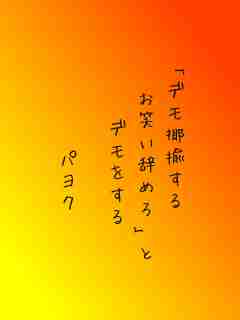 「デモ揶揄する
お笑い辞めろ」と
デモをする
パヨク